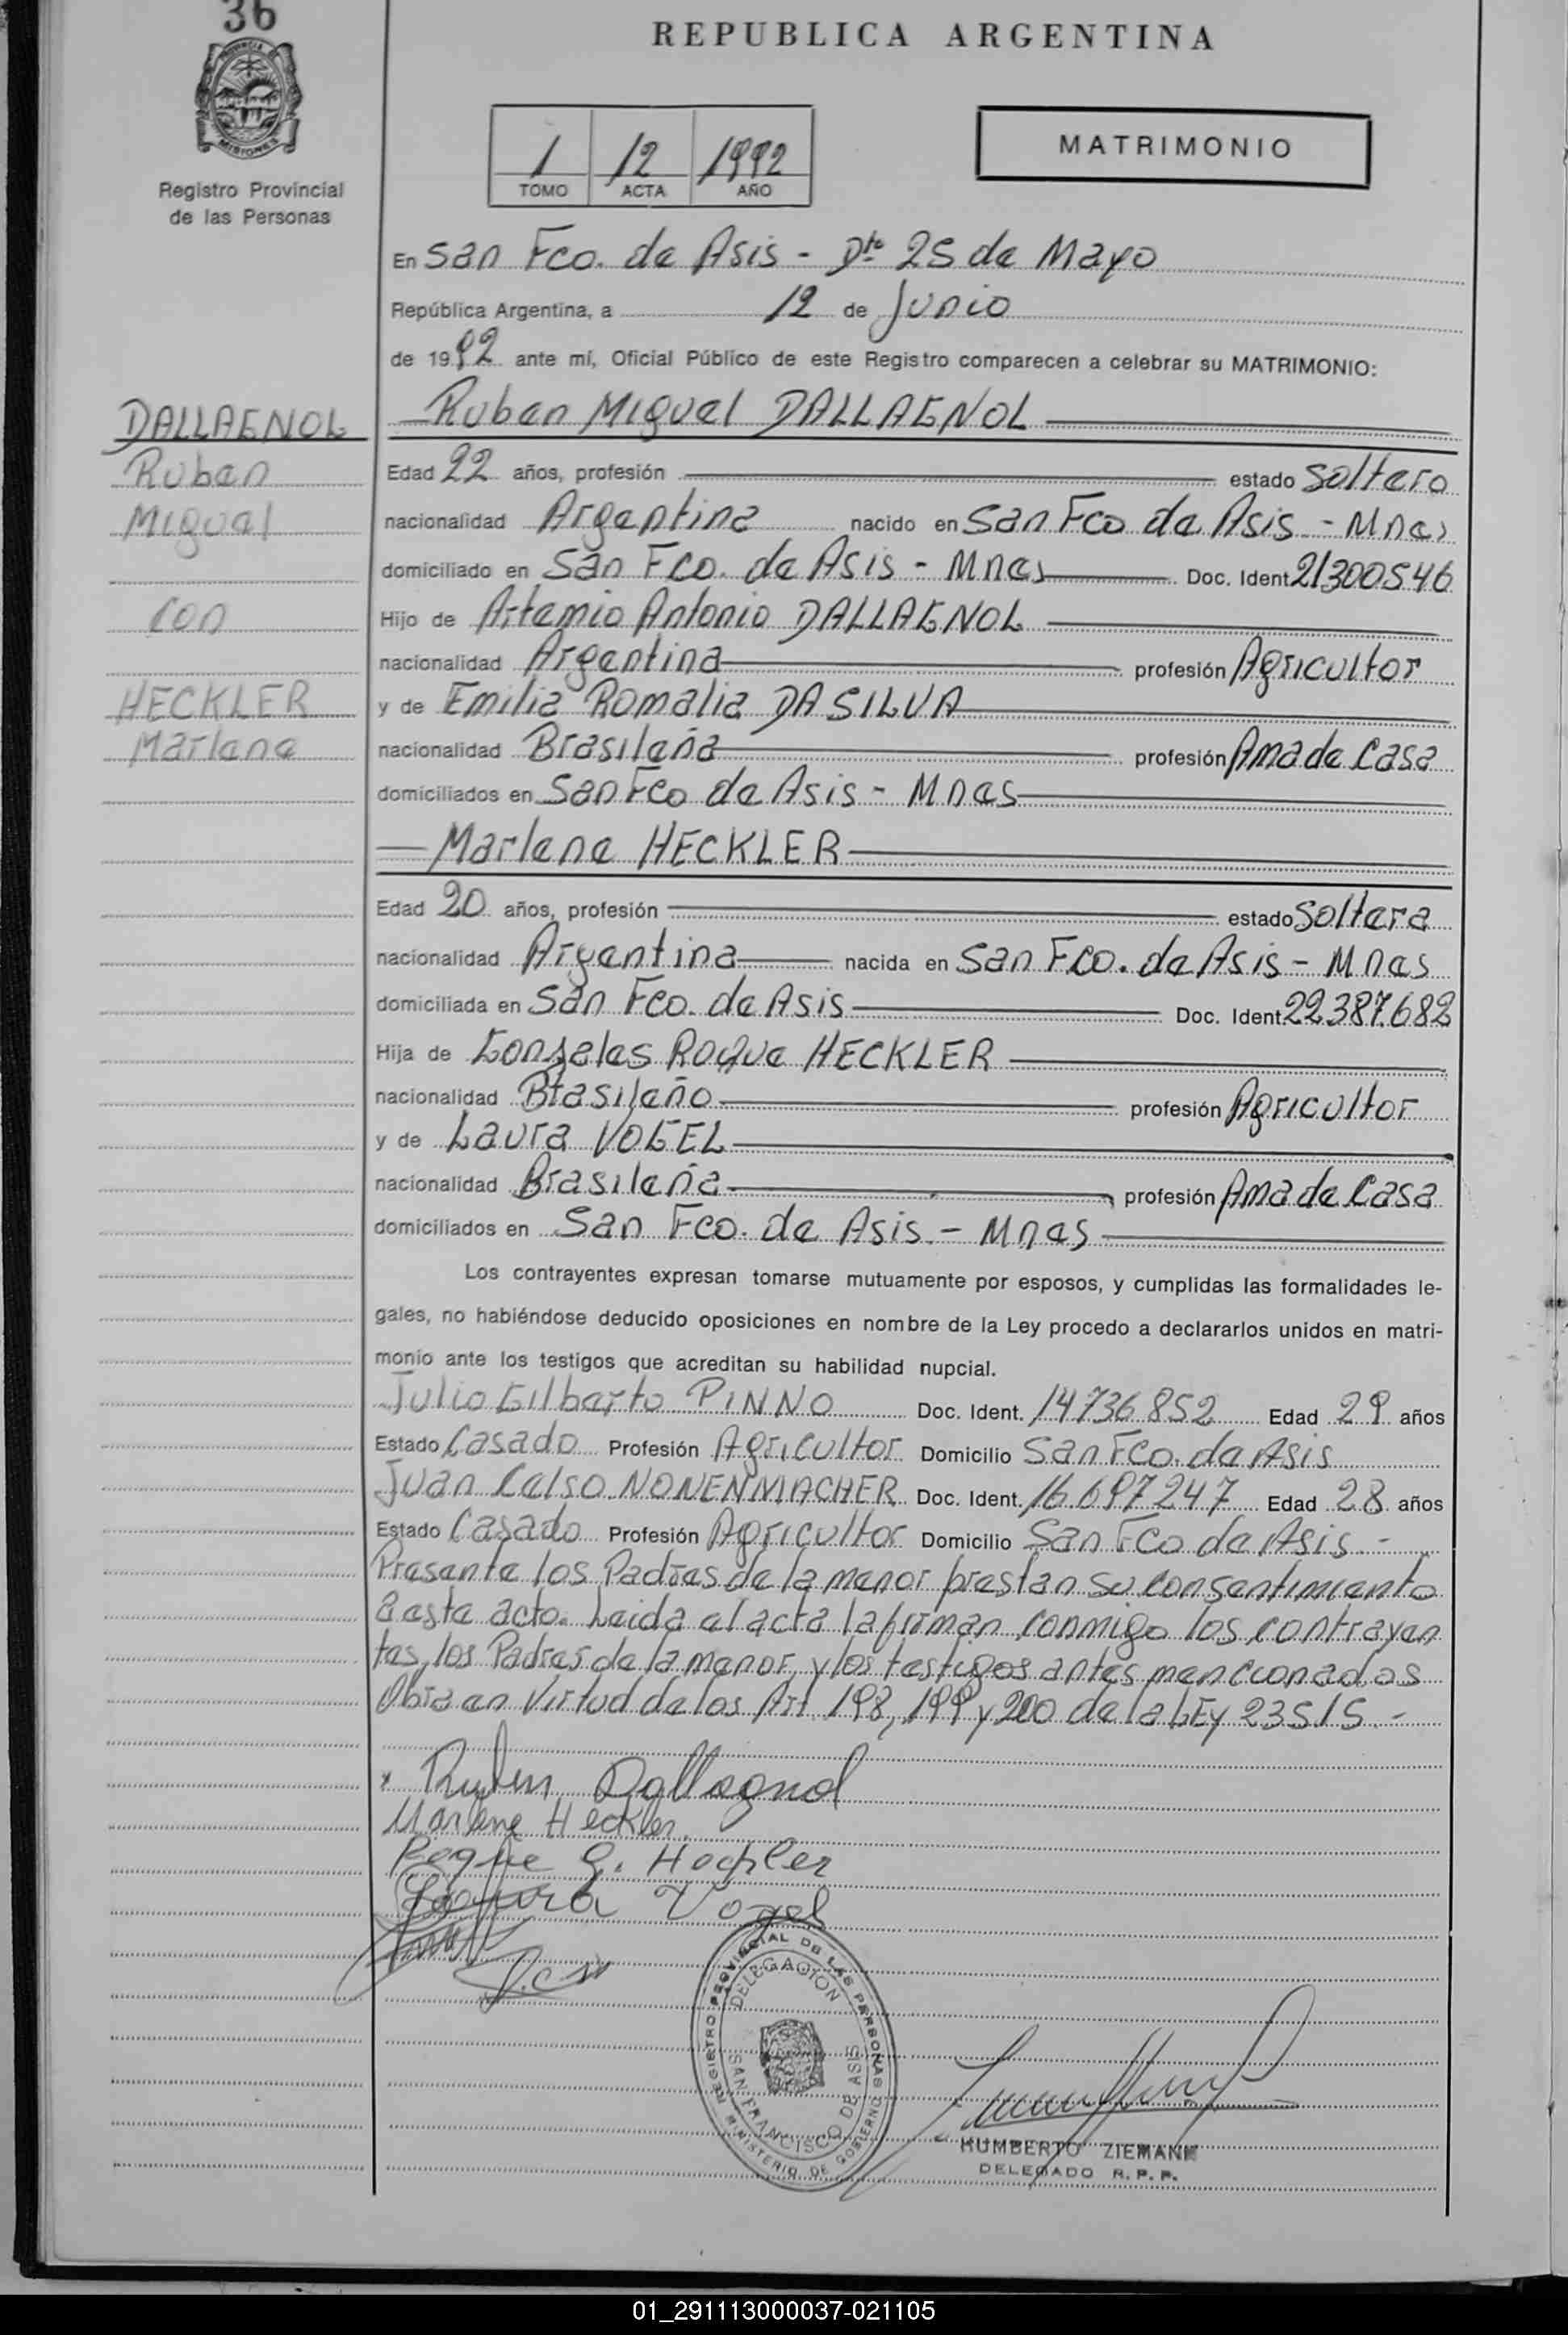 36
REPUBLICA ARGENTINA
PROVINCIA DE
MISIONES
Registro Provincial
de las Personas
1 12 1992
TOMO ACTA AÑO
MATRIMONIO
En San Fco. de Asis - Dto 25 de Mayo
República Argentina, a 12 de Junio
de 1992 ante mí, Oficial Público de este Registro comparecen a celebrar su MATRIMONIO:
DALLAGNOL
Ruben
Miguel
con
HECKLER
Marlene
Ruben Miguel DALLAGNOL
Edad 22 años, profesión estado Soltero
nacionalidad Argentina nacido en San Fco de Asis - Mnes
domiciliado en San Fco. de Asis - Mnes Doc. Ident. 21300546
Hijo de Artemio Antonio DALLAGNOL
nacionalidad Argentina profesión Agricultor
y de Emilia Romalia DA SILVA
nacionalidad Brasileña profesión Ama de Casa
domiciliados en San Fco de Asis - Mnes
Marlene HECKLER
Edad 20 años, profesión estado Soltera
nacionalidad Argentina nacida en San Fco. de Asis - Mnes
domiciliada en San Fco. de Asis Doc. Ident. 22.387.682
Hija de Gonzeles Roque HECKLER
nacionalidad Brasileño profesión Agricultor
y de Laura VOGEL
nacionalidad Brasileña profesión Ama de Casa
domiciliados en San Fco. de Asis - Mnes
Los contrayentes expresan tomarse mutuamente por esposos, y cumplidas las formalidades le-
gales, no habiéndose deducido oposiciones en nombre de la Ley procedo a declararlos unidos en matri-
monio ante los testigos que acreditan su habilidad nupcial.
Julio Gilberto PINNO Doc. Ident. 14736852 Edad 29 años
Estado Casado Profesión Agricultor Domicilio San Fco. de Asis
Juan Celso NONENMACHER Doc. Ident. 16.697247 Edad 28 años
Estado Casado Profesión Agricultor Domicilio San Fco de Asis.-
Presente los Padres de la menor prestan su consentimiento
a este acto. Leida el acta la firman conmigo los contrayen
tes, los Padres de la menor, y los testigos antes mencionados
Obra en Virtud de los Art. 198, 199 y 200 de la LEy 23515.-
x Ruben Dallagnol
Marlene Heckler.
Roque G. Heckler
Laura Vogel
REGISTRO PROVINCIAL DE LAS PERSONAS
DELEGACION
SAN FRANCISCO DE ASIS
MINISTERIO DE GOBIERNO
HUMBERTO ZIEMANN
DELEGADO R. P. P.
01_291113000037-021105